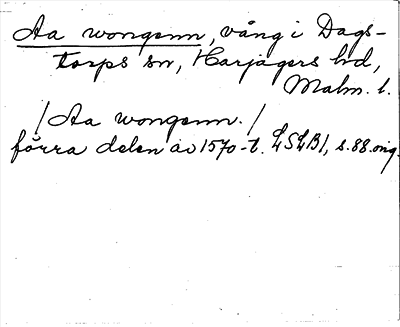 Aa wongenn, vång i Dags-
torps sn, Harjagers hd,
Malm. l.
/Aa wongenn./
förra delen av 1570-t. LSLB1, s.88. orig.